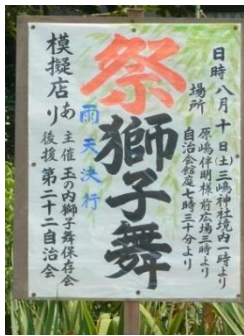 日時 八月十日(土)三嶋神社境内一時より
場所 原嶋伴明様前広場三時より
自治会館庭七時三十分より
祭
獅子舞
雨天決行
主催 玉の内獅子舞保存会
後援 第二十二自治会
模擬店あり